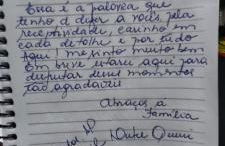 Essa é a palavra que
tenho a dizer a vocês pela
receptividade, carinho em
cada detalhe e por tudo
aqui! me sinto muito bem
em breve estarei aqui para
desfrutar desses momentos
tão agradáveis
Abraços á
Família